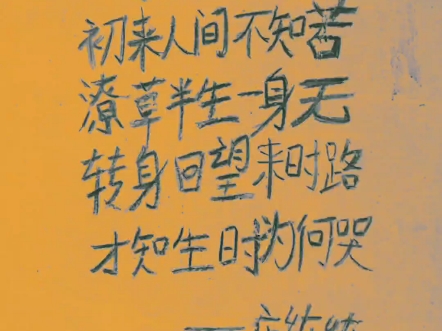 初来人间不知苦
潦草半生一身无
转身回望来时路
才知生时为何哭